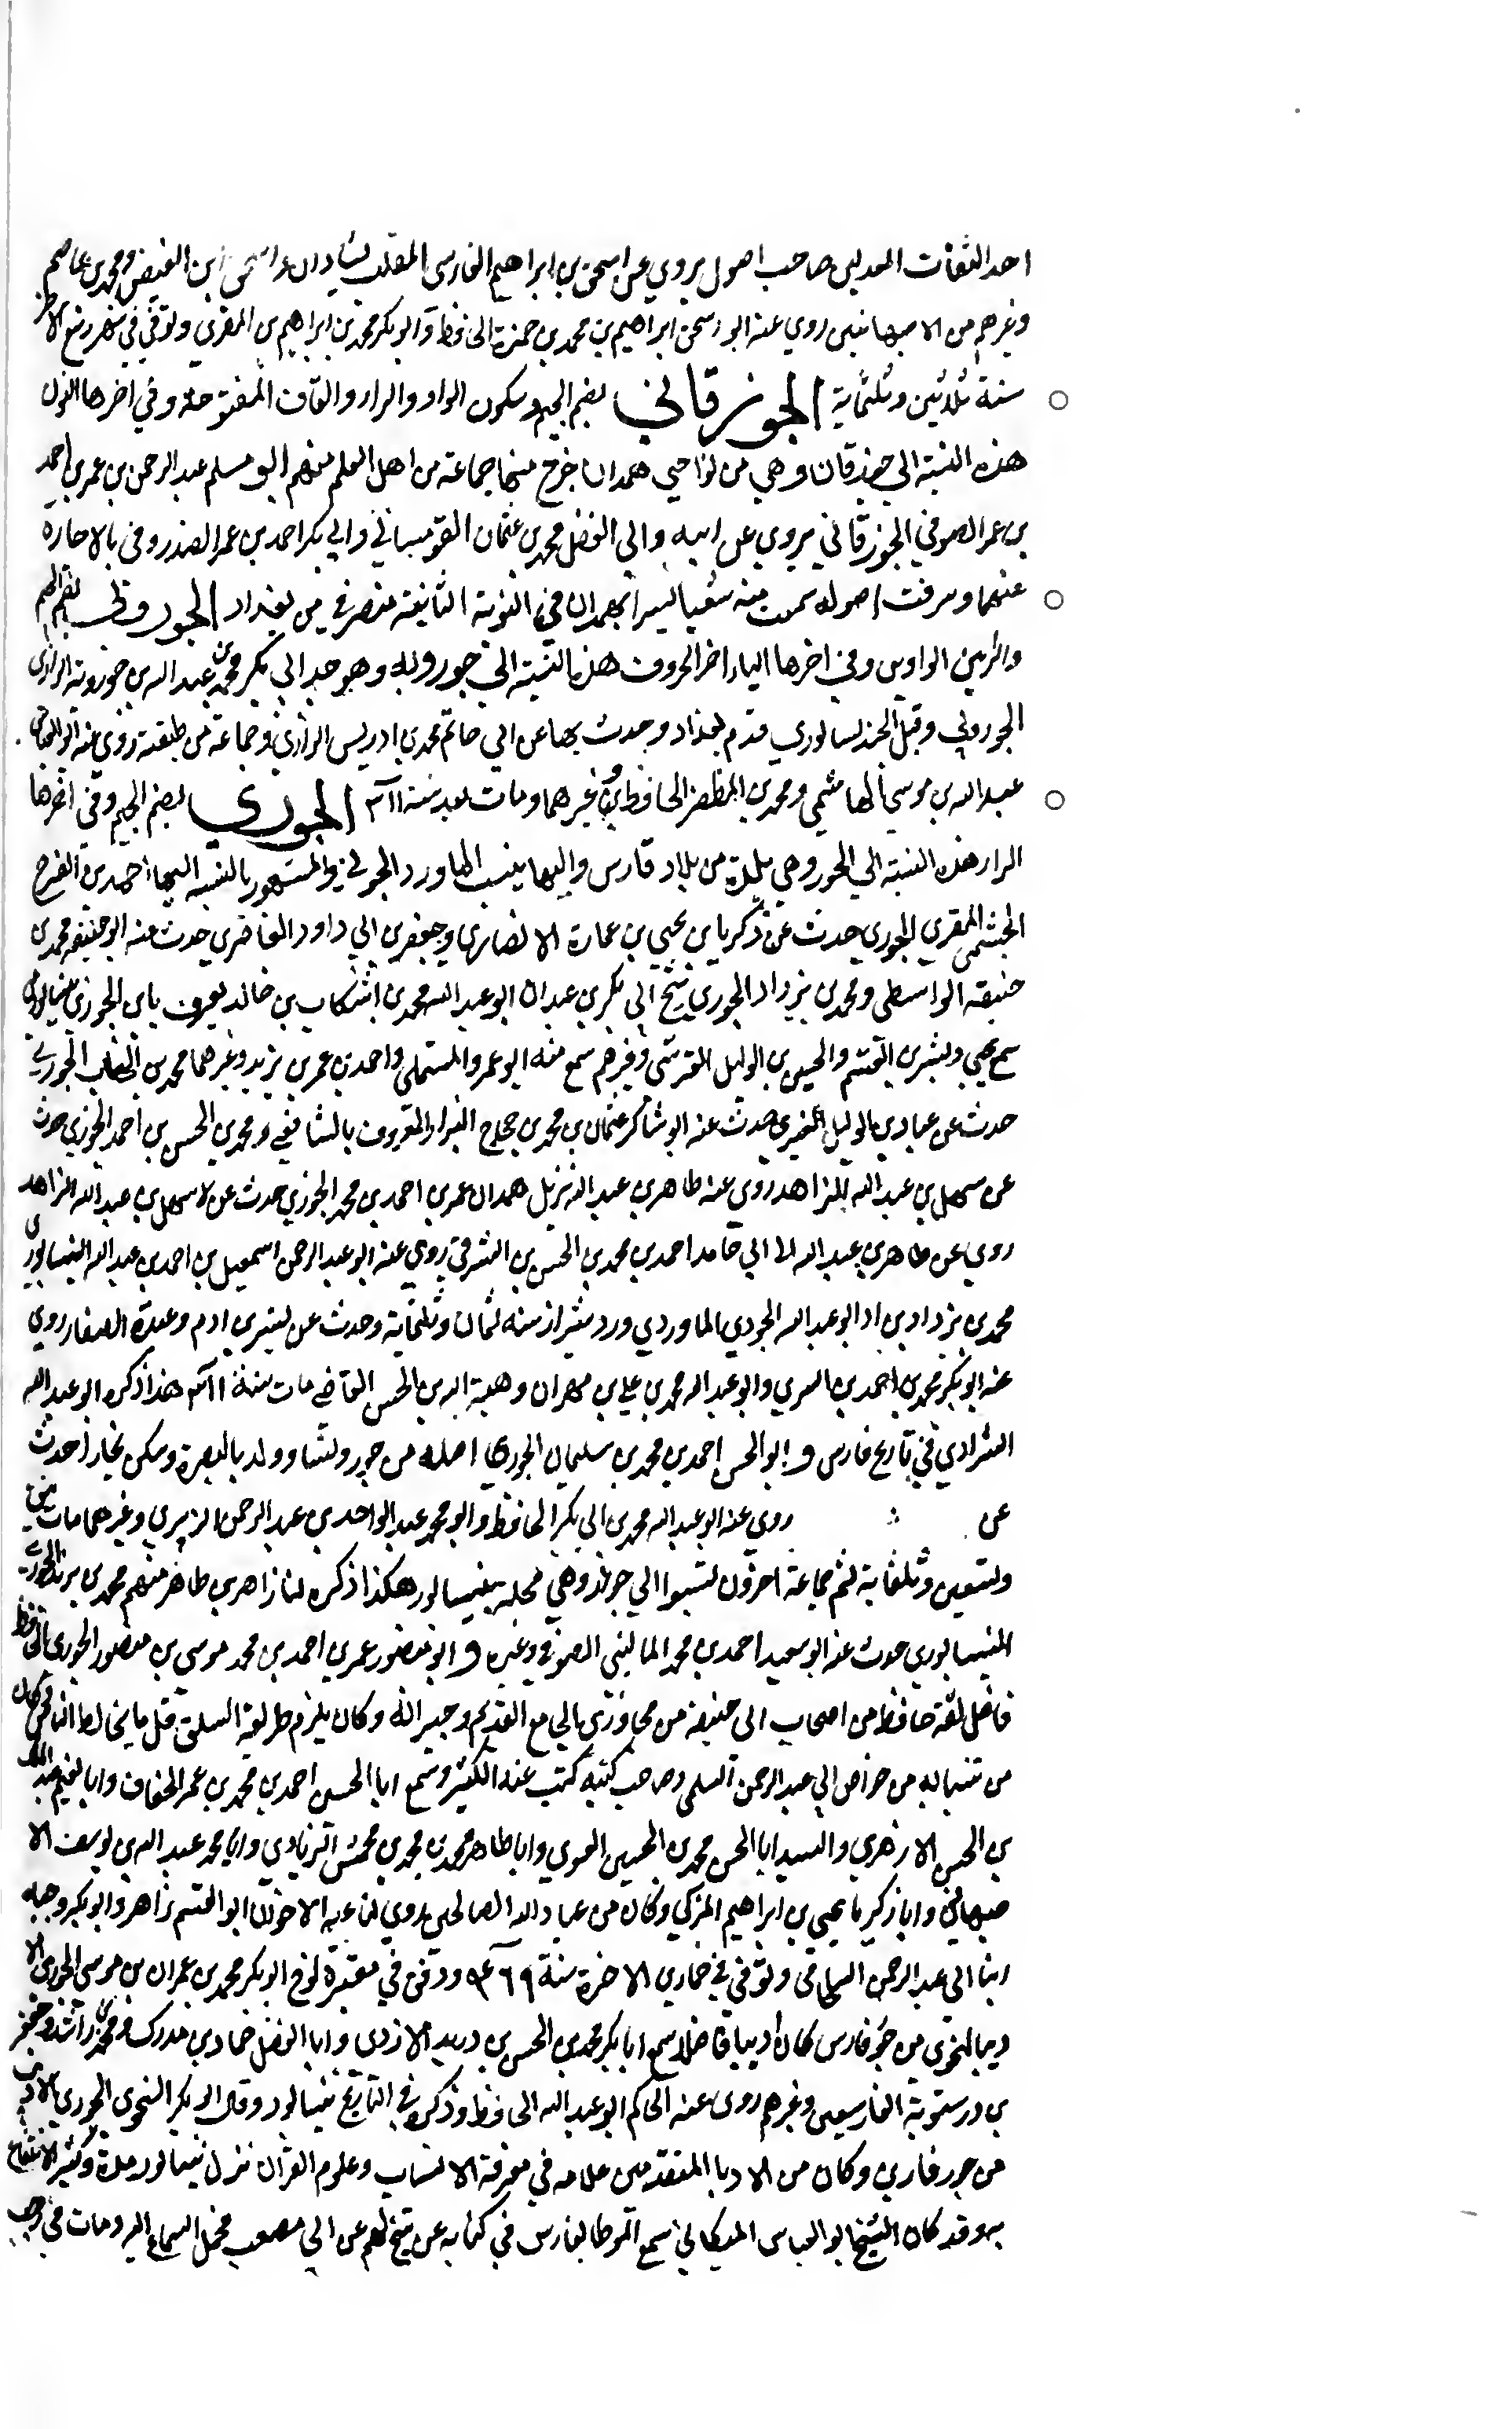 احد الثقات المعدلين صاحب اصول يروي عن اسحق بن ابراهيم الفارسي الملقب بشاذان واسحق ابن الفيض ومحمد بن عاصم
وغيرهم من الاصبهانيين روي عنه ابو اسحق ابراهيم بن محمد بن حمزة الحافظ وابو بكر محمد بن ابراهيم بن المقري وتوفي في شهر ربيع الاخر
سنة ثلاثين وثلثماية الجوزقاني بضم الجيم وسكون الواو والراء والقاف المفتوحة وفي اخرها النون
هذه النسبة الي جوزقان وهي من نواحي همدان خرج منها جماعة من اهل العلم منهم ابو مسلم عبد الرحمن بن عمر بن احمد
بن عمر الصوفي الجوزقاني يروي عن ابيه وابي الفضل محمد بن عثمان القومساني وابي بكر احمد بن عمر الصندروفي بالاجازة
عنهما وسرقت اصوله سمعت منه شيئا يسيرا بهمدان في النوبة الثانية منصرفي من بغداد الجورويي بضم الجيم
والراء بين الواوين وفي اخرها الياء اخر الحروف هذه النسبة الي جورويه وهو جد ابي بكر محمد بن عبد الله بن جورويه الرازي
الجورويي وقيل الجنديسابوري قدم بغداد وحدث بها عن ابي حاتم محمد بن ادريس الرازي وجماعة من طبقته روي عنه ابو العباس
عبد الله بن موسي الهاشمي ومحمد بن المظفر الحافظ وغيرهما ومات بعد سنة ٣١١ الجوري بضم الجيم وفي اخرها
الراء هذه النسبة الي الجور وهي بلدة من بلاد فارس واليها ينسب الماورد الجوري والمشهور بالنسبة اليها احمد بن الفرج
الجشمي المقري الجوري حدث عن زكريا بن يحيي بن عمارة الانصاري وجعفر بن ابي داود الغافري حدث عنه ابو حنيفه محمد بن
حنيفه الواسطي ومحمد بن يزداد الجوري شيخ ابي بكر بن عبدان ابو عبد الله محمد بن اشكاب بن خالد يعرف بابن الجوري نيسابوري
سمع يحيي وبشر بن القسم والحسين بن الوليد القرشي وغيرهم سمع منه ابو عمرو المستملي واحمد بن عمر بن يزيد وغيرهما محمد بن الخطاب الجوري
حدث عن عباد بن الوليد الغبري حدث عنه ابو شاكر عثمان بن محمد بن حجاج البزار المعروف بالشافعي ومحمد بن الحسن بن احمد الجوري حدث
عن سهل بن عبد الله الزاهد روي عنه طاهر بن عبد الله نزيل همدان عمر بن احمد بن محمد الجوري حدث عن سهل بن عبد الله الزاهد
روي عن طاهر بن عبد الله ابي حامد احمد بن محمد بن الحسن بن الشرقي روي عنه ابو عبد الرحمن اسمعيل بن احمد بن عبد الله النيسابوري
محمد بن يزداد بن اد ابو عبد الله الجوري الماوردي ورد شيراز سنه ثمان وثلثماية وحدث عن بشر بن ادم وعبدة الصفار روي
عنه ابو بكر محمد بن احمد بن السري وابو عبد الله محمد بن علي بن مهران وهبة الله بن الحسن القاضي مات سنة ٣١١ هذا ذكره ابو عبد الله
الشرازي في تاريخ فارس و ابو الحسن احمد بن محمد بن سليمان الجوري اصله من جور ونشا وولد بالبصرة وسكن بخارا حدث
عن روي عنه ابو عبد الله محمد بن ابي بكر الحافظ وابو محمد عبد الواحد بن عبد الرحمن الزبيري وغيرهما مات
وتسعين وثلثماية ثم جماعة اخرون نسبوا الي جور وهي محلة بنيسابور هكذا ذكره لنا زاهر بن طاهر منهم محمد بن يزيد الجوري
النيسابوري حدث عنه ابو سعيد احمد بن محمد الماليني الصوفي وغيره و ابو منصور عمر بن احمد بن محمد موسي بن منصور الجوري الحافظ
فاضل ثقة حافظ من اصحاب ابي حنيفة من وكان يلزم طريقة السلف قل ما يخالط الناس وكان
من نيسابور من خواص ابي عبد الرحمن السلمي وصاحب كتبه كتب عنه الكثير وسمع ابا الحسين احمد بن محمد بن عمر الخفاف وابا نعيم عبد الملك
بن الحسن الازهري والسيد ابا الحسن محمد بن الحسين العلوي وابا طاهر محمد بن محمد بن محمش الزيادي وابا محمد عبد الله بن يوسف الا
صبهاني وابا زكريا يحيي بن ابراهيم المزكي وكان من عباد الله الصالحين روي لنا عنه الاخوان ابو القسم زاهر وابو بكر وجيه
ابنا طاهر الشحامي وتوفي في جمادي الاخرة سنة ٤٦٩ ودفن في مقبرة نوح ابو بكر محمد بن عمران بن موسي الجوري الا
ديب النحوي من جور فارس كان اديبا فاضلا سمع ابا بكر محمد بن الحسن بن دريد الازدي وابا الفضل حماد بن مدرك ومحمد بن راشد وجعفر
بن درستويه الفارسيين وغيرهم روي عنه الحاكم ابو عبد الله الحافظ وذكره في التاريخ نيسابور وقال ابو بكر النحوي الجوري الاديب
من جور فارس وكان من الادبا المتقدمين علامه في معرفة الانساب وعلوم القرآن نزل نيسابور مدة وكثير الانتفاع
به وقد كان الشيخ ابو العباس الميكالي سمع الموطا بفارس في كتابه عن شيخ لهم عن ابي مصعب فحمل السماع اليه ومات في رجب